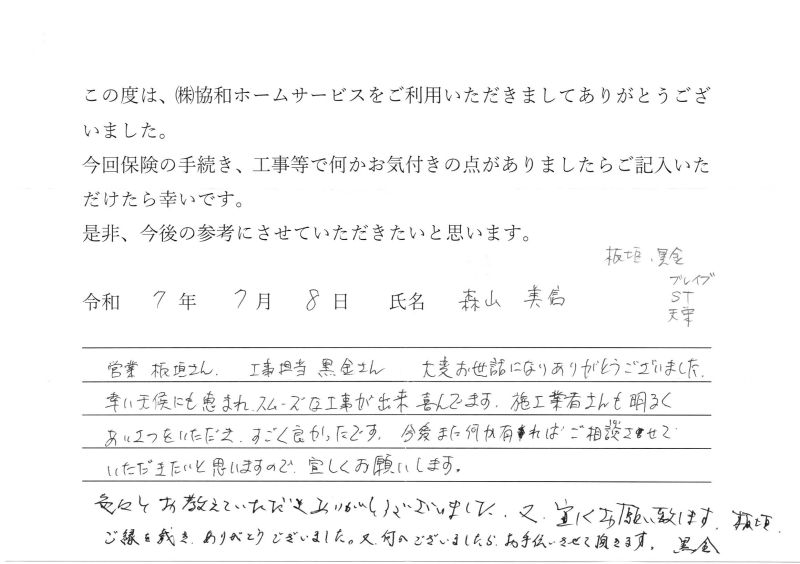 この度は、㈱協和ホームサービスをご利用いただきましてありがとうござ
いました。
今回保険の手続き、工事等で何かお気付きの点がありましたらご記入いた
だけたら幸いです。
是非、今後の参考にさせていただきたいと思います。
板垣、黒金
ブレイブ
ST
天栄
令和 7 年 7 月 8 日 氏名 森山 美信
営業 板垣さん、 工事担当 黒金さん 大変お世話になりありがとうございました。
幸い天候にも恵まれ、スムーズな工事が出来 喜んでます。施工業者さんも明るく
あいさつをいただき、すごく良かったです。今後また何か有ればご相談させて
いただきたいと思いますので、宜しくお願いします。
色々とお教えていただきありがとうございました。又、宜しくお願い致します。板垣
ご縁を戴き、ありがとうございました。又、何かございましたら、お手伝いさせて頂きます。 黒金